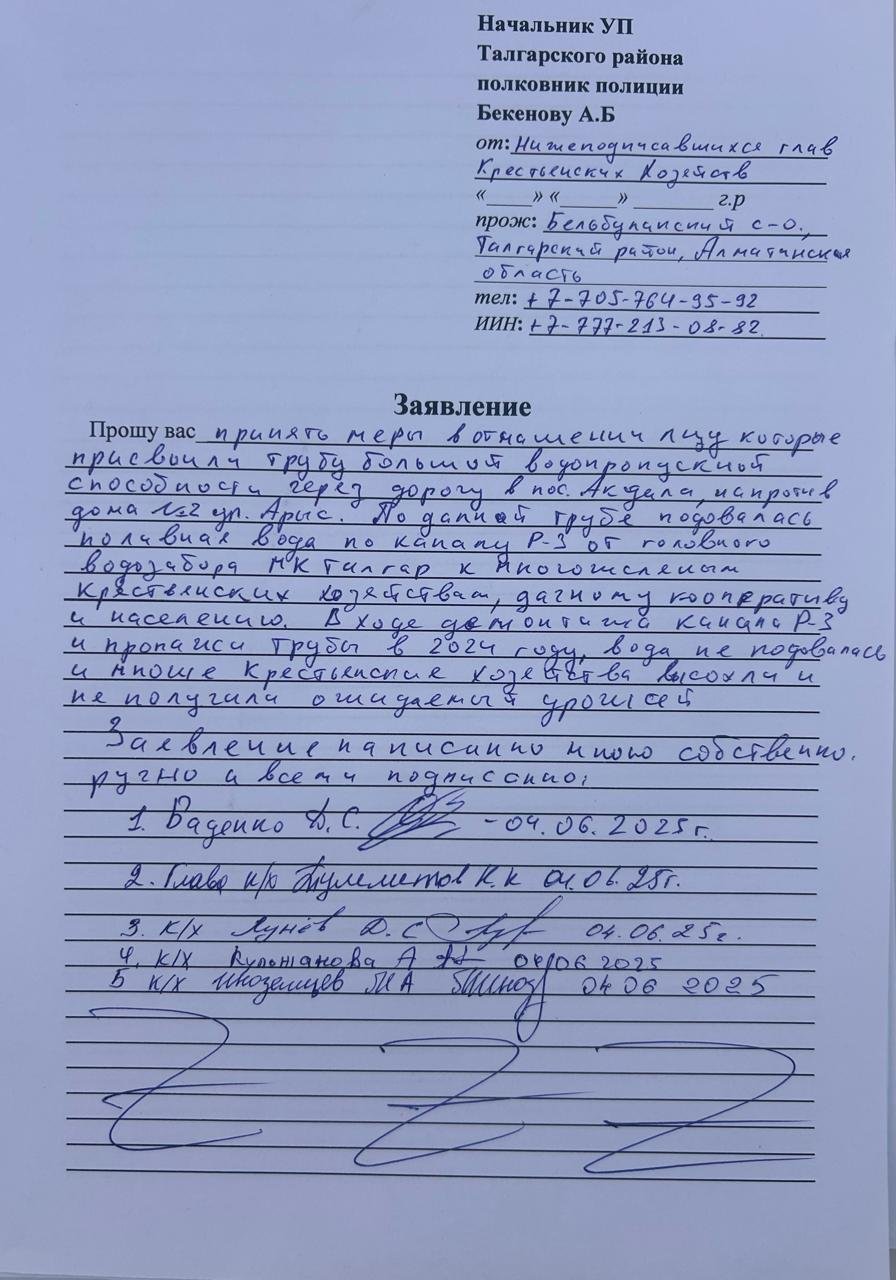 Начальник УП
Талгарского района
полковник полиции
Бекенову А.Б
от: Нижеподписавшихся глав
Крестьенских Хозяйств
«____» «_____» ________ г.р
прож: Бельбулакский с-о.,
Талгарский район, Алматинская
область
тел: +7-705-764-95-92
ИИН: +7-777-213-08-82
Заявление
Прошу вас принять меры в отнашении лицу которые
присвоили трубу большой водопропускной
способности через дорогу в пос. Акдала, напротив
дома №2 ул. Арыс. По данной трубе подовалась
поливная вода по каналу Р-3 от головного
водозабора МК Талгар к многочисленым
Крестьенских хозяйствам, дачному кооперативу
и населению. В ходе демонтажа канала Р-3
и пропажи трубы в 2024 году, вода не подовалась
и многие Крестьенские хозейства высохли и
не получили ожидаемый урожай
Заявление написанно мною собственно.
ручно и всеми подписанно:
1. Ваденко Д.С. - 04.06.2025г.
2. Глава к/х К.К 04.06.25г.
3. к/х Лунёв Д.С 04.06.25г.
4. к/х Кульжанова А 04/06 2025
5 к/х Иноземцев 04 06 2025